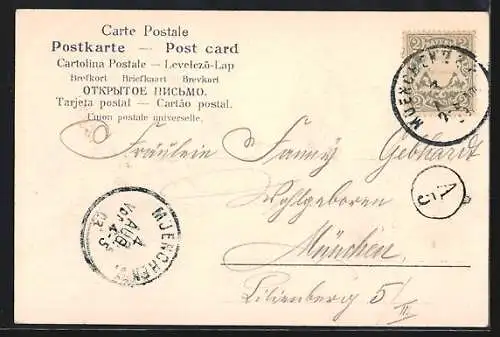 Carte Postale
Postkarte — Post card
Cartolina Postale — Levelező-Lap
Brefkort Briefkaart Brevkort
ОТКРЫТОЕ ПИСЬМО.
Tarjeta postal — Cartão postal.
Union postale universelle.
2 2
MUENCHEN
Fräulein Fanny Gebhardt
A 5
Wohlgeboren
MUENCHEN
4 AUG.
VOR. 4-5
03
München.
Lilienberg 5/III